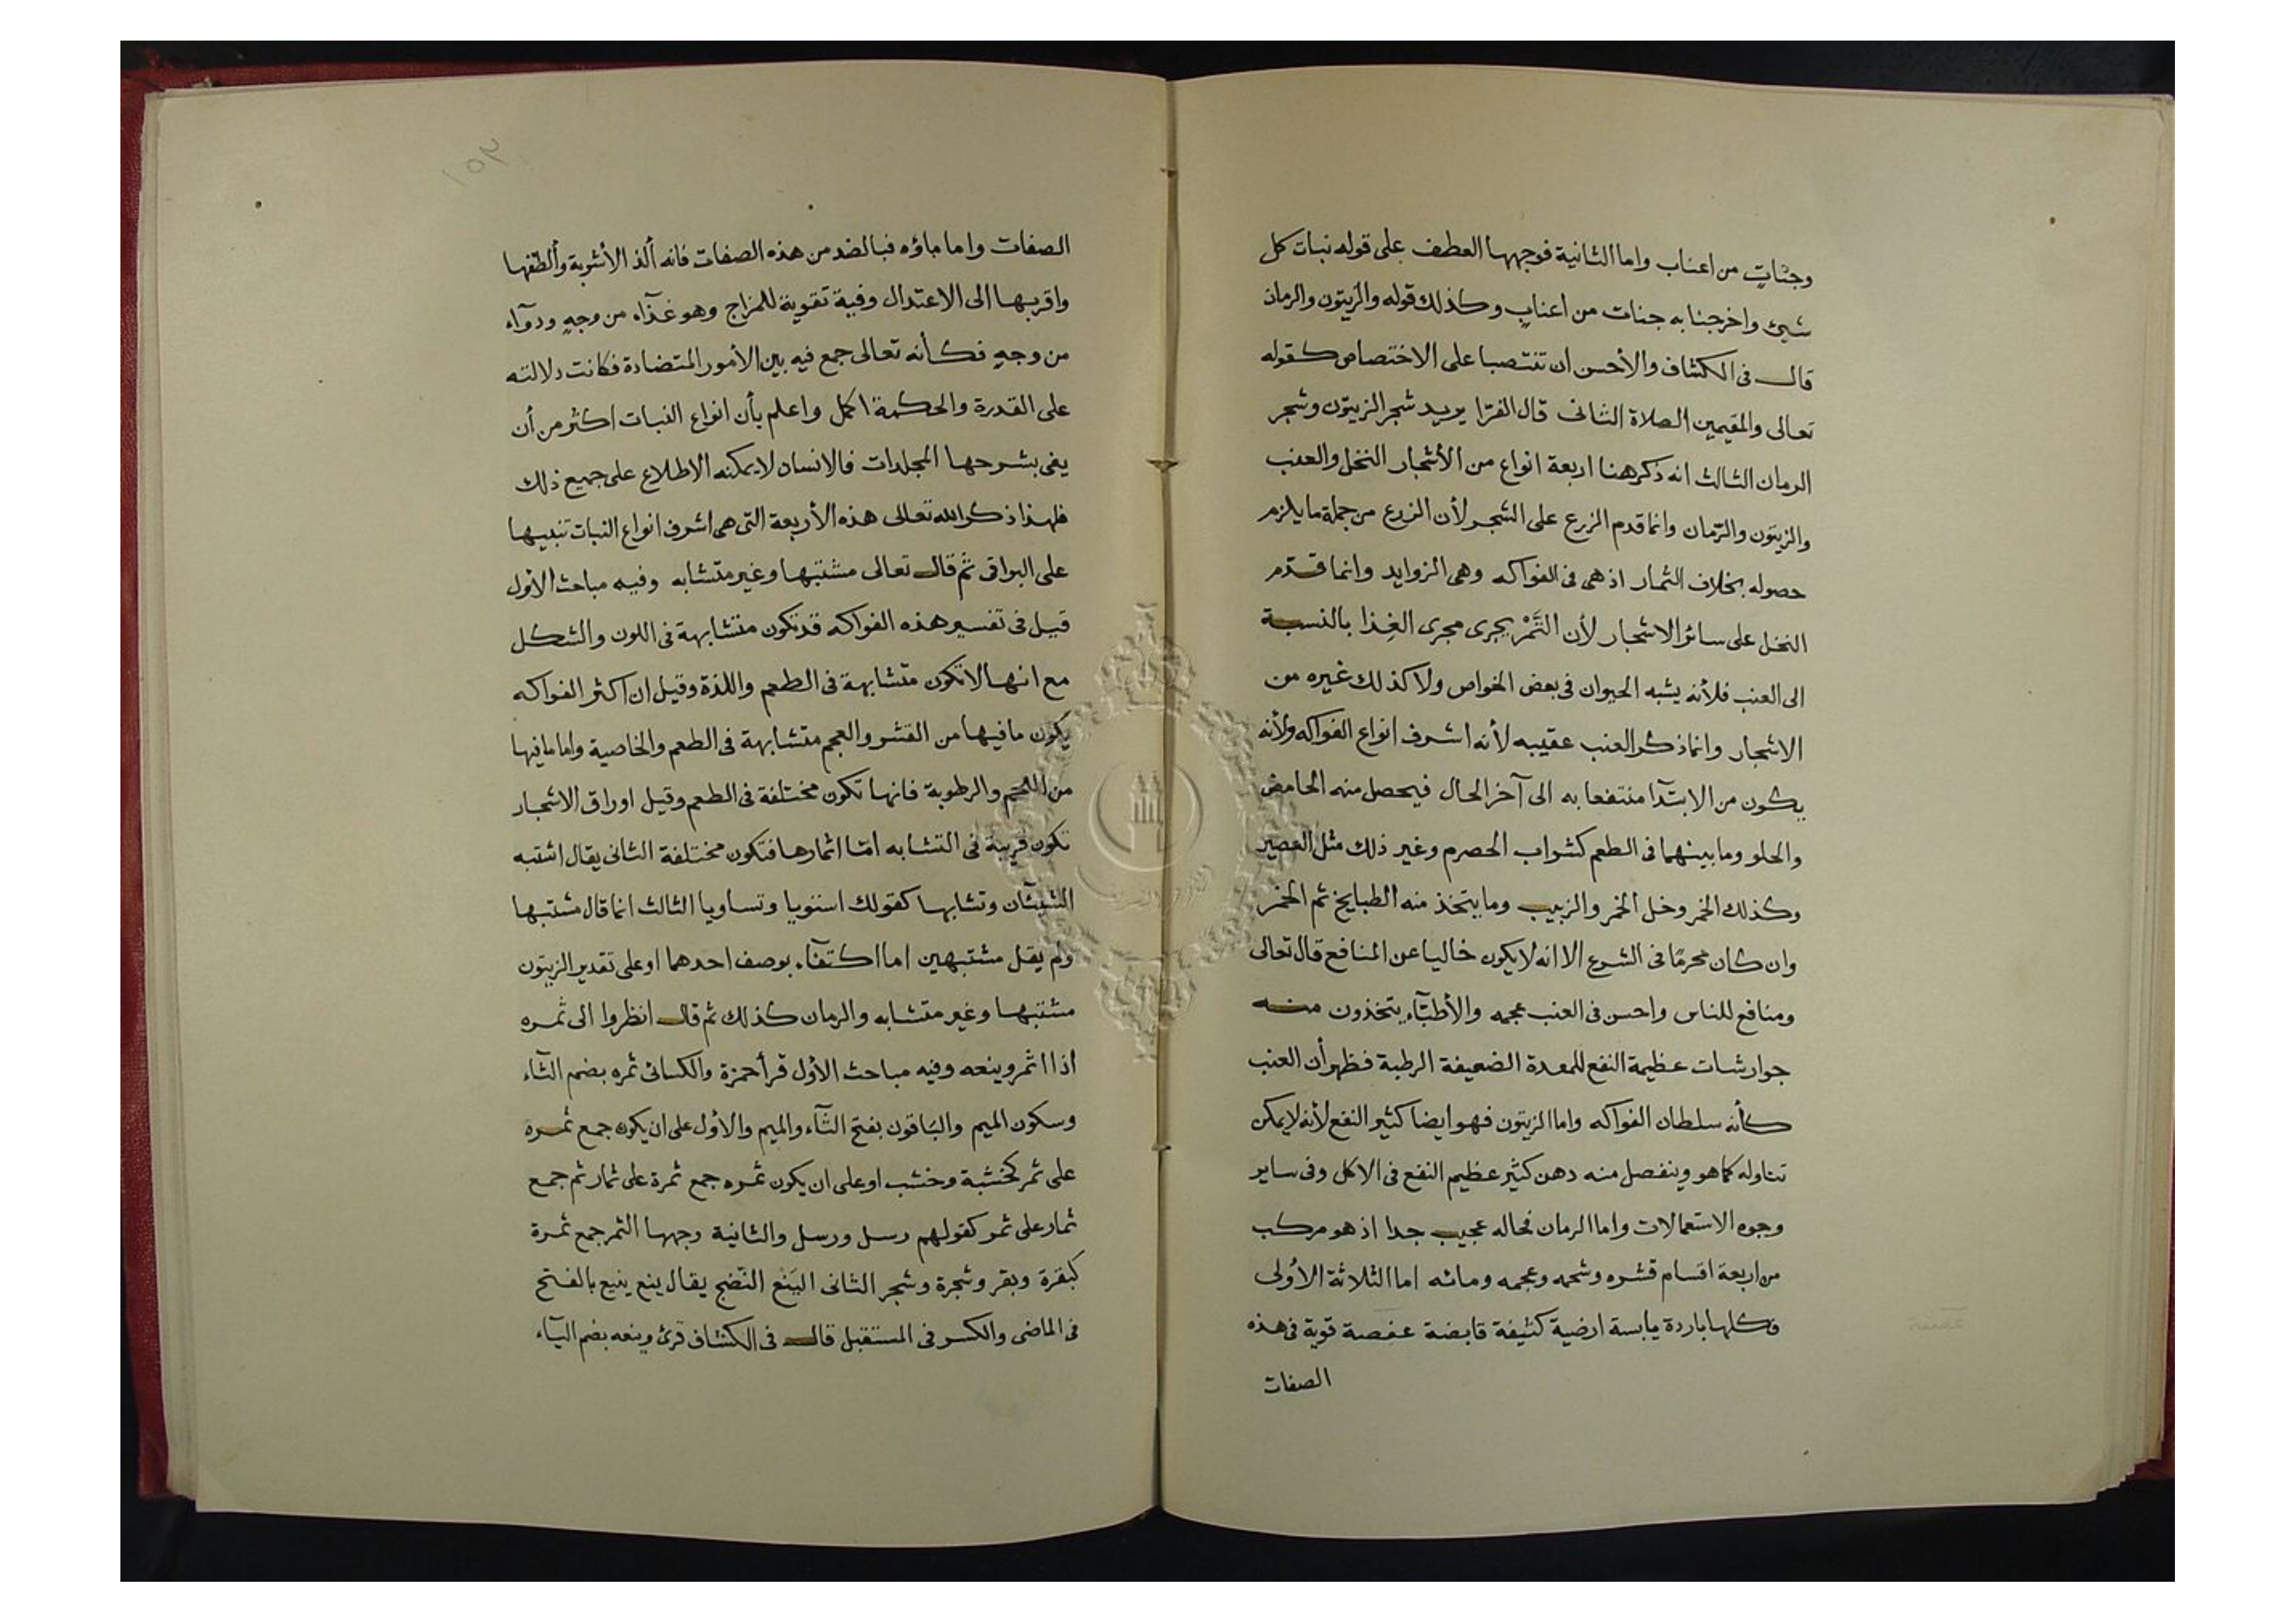 وجناتٍ من اعناب واما الثانية فوجهها العطف على قوله نبات كل
شيئ واخرجنا به جنات من اعنابٍ وكذلك قوله والزيتون والرمان
قال فى الكشاف والأحسن ان تنتصبا على الاختصاص كقوله
تعالى والمقيمين الصلاة الثانى قال الفرّا يريد شجر الزيتون وشجر
الرمان الثالث انه ذكر هنا اربعة انواع من الأشجار النخل والعنب
والزيتون والرّمان وانما قدم الزرع على الشجر لأن الزرع من جملة ما يلزم
حصوله بخلاف الثمار اذ هى فى الفواكه وهى الزوايد وانما قدّم
النخل على سائر الاشجار لأن التَّمْر يجرى مجرى الغِذا بالنسبة
الى العنب فلأنه يشبه الحيوان فى بعض الخواص ولا كذلك غيره من
الاشجار وانما ذكر العنب عقيبه لأنه اشرف انواع الفواكه ولأنه
يكون من الابتدآ منتفعا به الى آخر الحال فيحصل منه الحامض
والحلو وما بينهما فى الطعم كشراب الحصرم وغير ذلك مثل العصير
وكذلك الخمر وخل الخمر والزبيب وما يتخذ منه الطبايخ ثم الخمر
وان كان محرمًا فى الشرع الا انه لا يكون خاليا عن المنافع قال تعالى
ومنافع للناس واحسن فى العنب عجمه والأطبّآء يتخذون منه
جوارشات عظيمة النفع للمعدة الضعيفة الرطبة فظهر أن العنب
كأنه سلطان الفواكه واما الزيتون فهو ايضا كثير النفع لأنه لا يمكن
تناوله كما هو وينفصل منه دهن كثير عظيم النفع فى الاكل وفى ساير
وجوه الاستعمالات واما الرمان فحاله عجيب جدا اذ هو مركب
من اربعة اقسام قشره وشحمه وعجمه ومائه اما الثلاثة الأولى
فكلها باردة يابسة ارضية كثيفة قابضة عفصة قوية فى هذه
الصفات
١٥٣
الصفات واما ماؤه فبالضد من هذه الصفات فانه ألذ الأشربة وألطفها
واقربها الى الاعتدال وفيه تقوية للمزاج وهو غذآء من وجهٍ ودوآء
من وجهٍ فكأنه تعالى جمع فيه بين الأمور المتضادة فكانت دلالته
على القدرة والحكمة اكمل واعلم بأن انواع النبات اكثر من أن
يفى بشرحها المجلدات فالانسان لا يمكنه الاطلاع على جميع ذلك
فلهذا ذكر الله تعالى هذه الأربعة التى هى اشرف انواع النبات تنبيها
على البواقى ثم قال تعالى مشتبها وغير متشابه وفيه مباحث الأول
قيل فى تفسير هذه الفواكه قد تكون متشابهة فى اللون والشكل
مع انها لا تكون متشابهة فى الطعم واللذة وقيل ان اكثر الفواكه
يكون ما فيها من القشر والعجم متشابهة فى الطعم والخاصية واما ما فيها
من اللحم والرطوبة فانها تكون مختلفة فى الطعم وقيل اوراق الاشجار
تكون قريبة فى التشابه امّا اثمارها فتكون مختلفة الثانى يقال اشتبه
الشيئآن وتشابها كقولك استويا وتساويا الثالث انما قال مشتبها
ولم يقل مشتبهين اما اكتفآء بوصف احدهما او على تقدير الزيتون
مشتبها وغير متشابه والرمان كذلك ثم قال انظروا الى ثمره
اذا اثمر وينعه وفيه مباحث الأول قرأ حمزة والكسائى ثمره بضم الثآء
وسكون الميم والباقون بفتح الثآء والميم والأول على ان يكون جمع ثمرة
على ثمر كخشبة وخشب او على ان يكون ثمره جمع ثمرة على ثمار ثم جمع
ثمار على ثمر كقولهم رسل ورسل والثانية وجهها الثمر جمع ثمرة
كبقرة وبقر وشجرة وشجر الثانى اليَنْع النّضج يقال ينع ينيع بالفتح
فى الماضى والكسر فى المستقبل قال فى الكشاف قرئ وينعه بضم اليآء